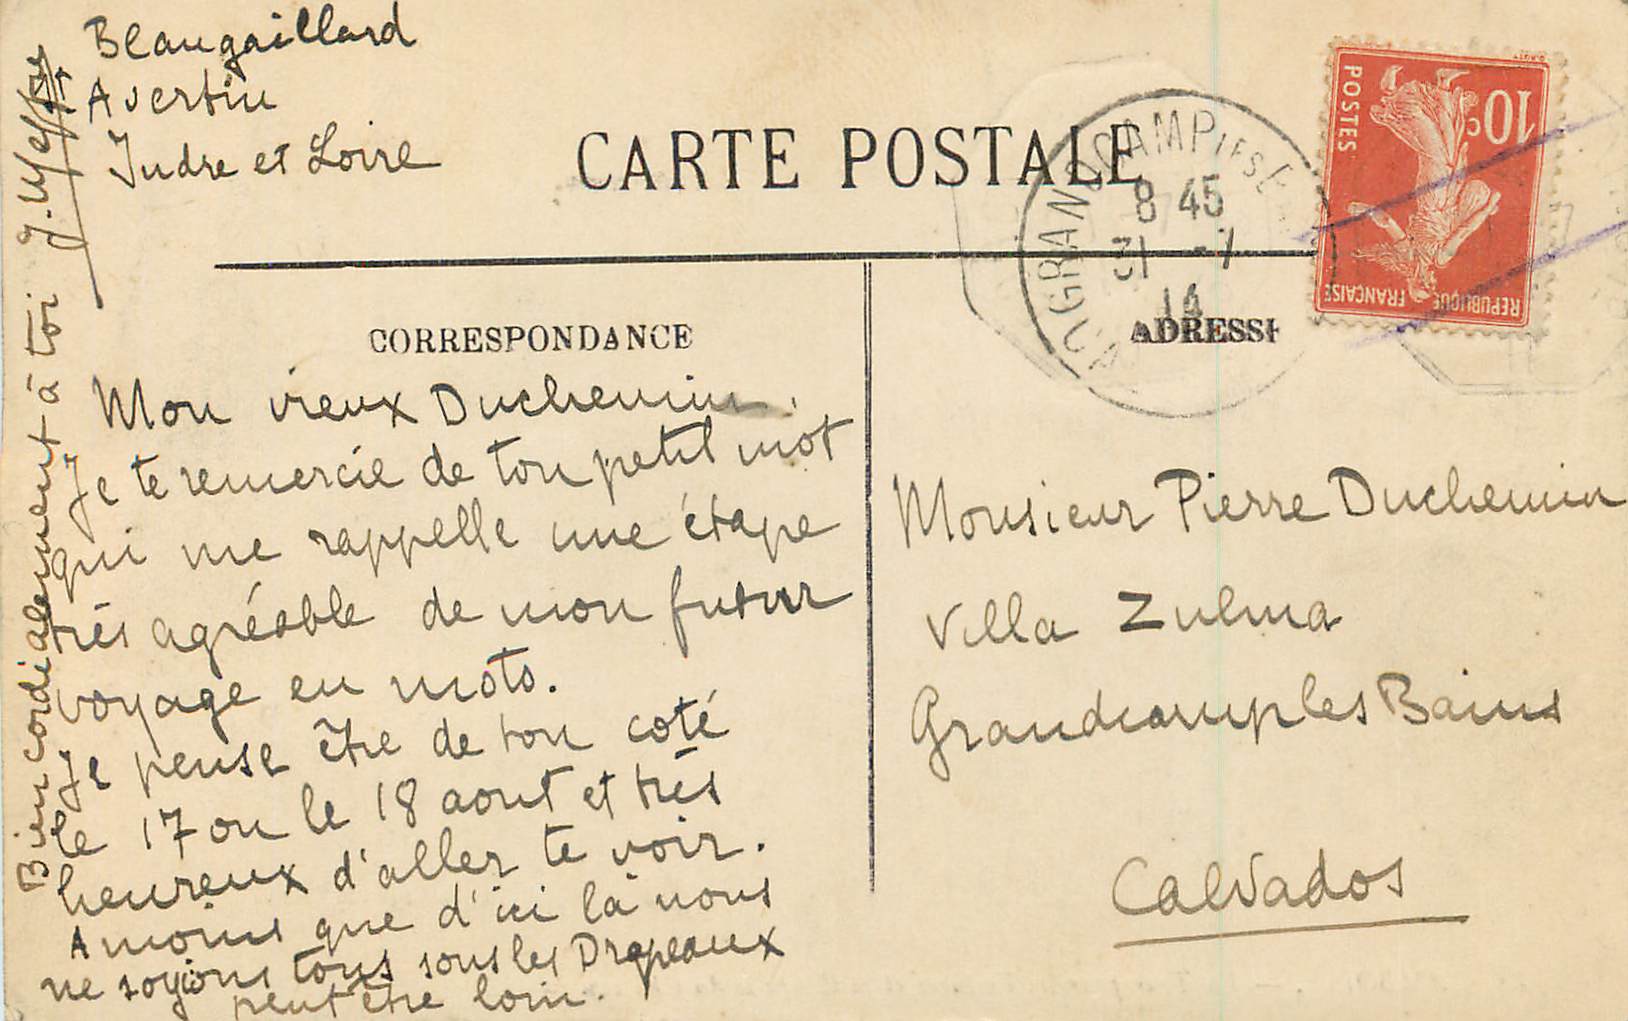 Beaugaillard
St Avertin
Indre et Loire
CARTE POSTALE
GRANDCAMP
8 45
31 -7
14
10c
POSTES
REPUBLIQUE FRANÇAISE
CORRESPONDANCE
ADRESSE
Mon vieux Duchemin.
Je te remercie de ton petit mot
qui me rappelle une étape
très agréable de mon futur
voyage en moto.
Je pense être de ton coté
le 17 ou le 18 aout et très
heureux d'aller te voir.
A moins que d'ici là nous
ne soyions tous sous les Drapeaux
peut être loin.
Bien cordialement à toi
Monsieur Pierre Duchemin
Villa Zulma
Grandcamp les Bains
Calvados